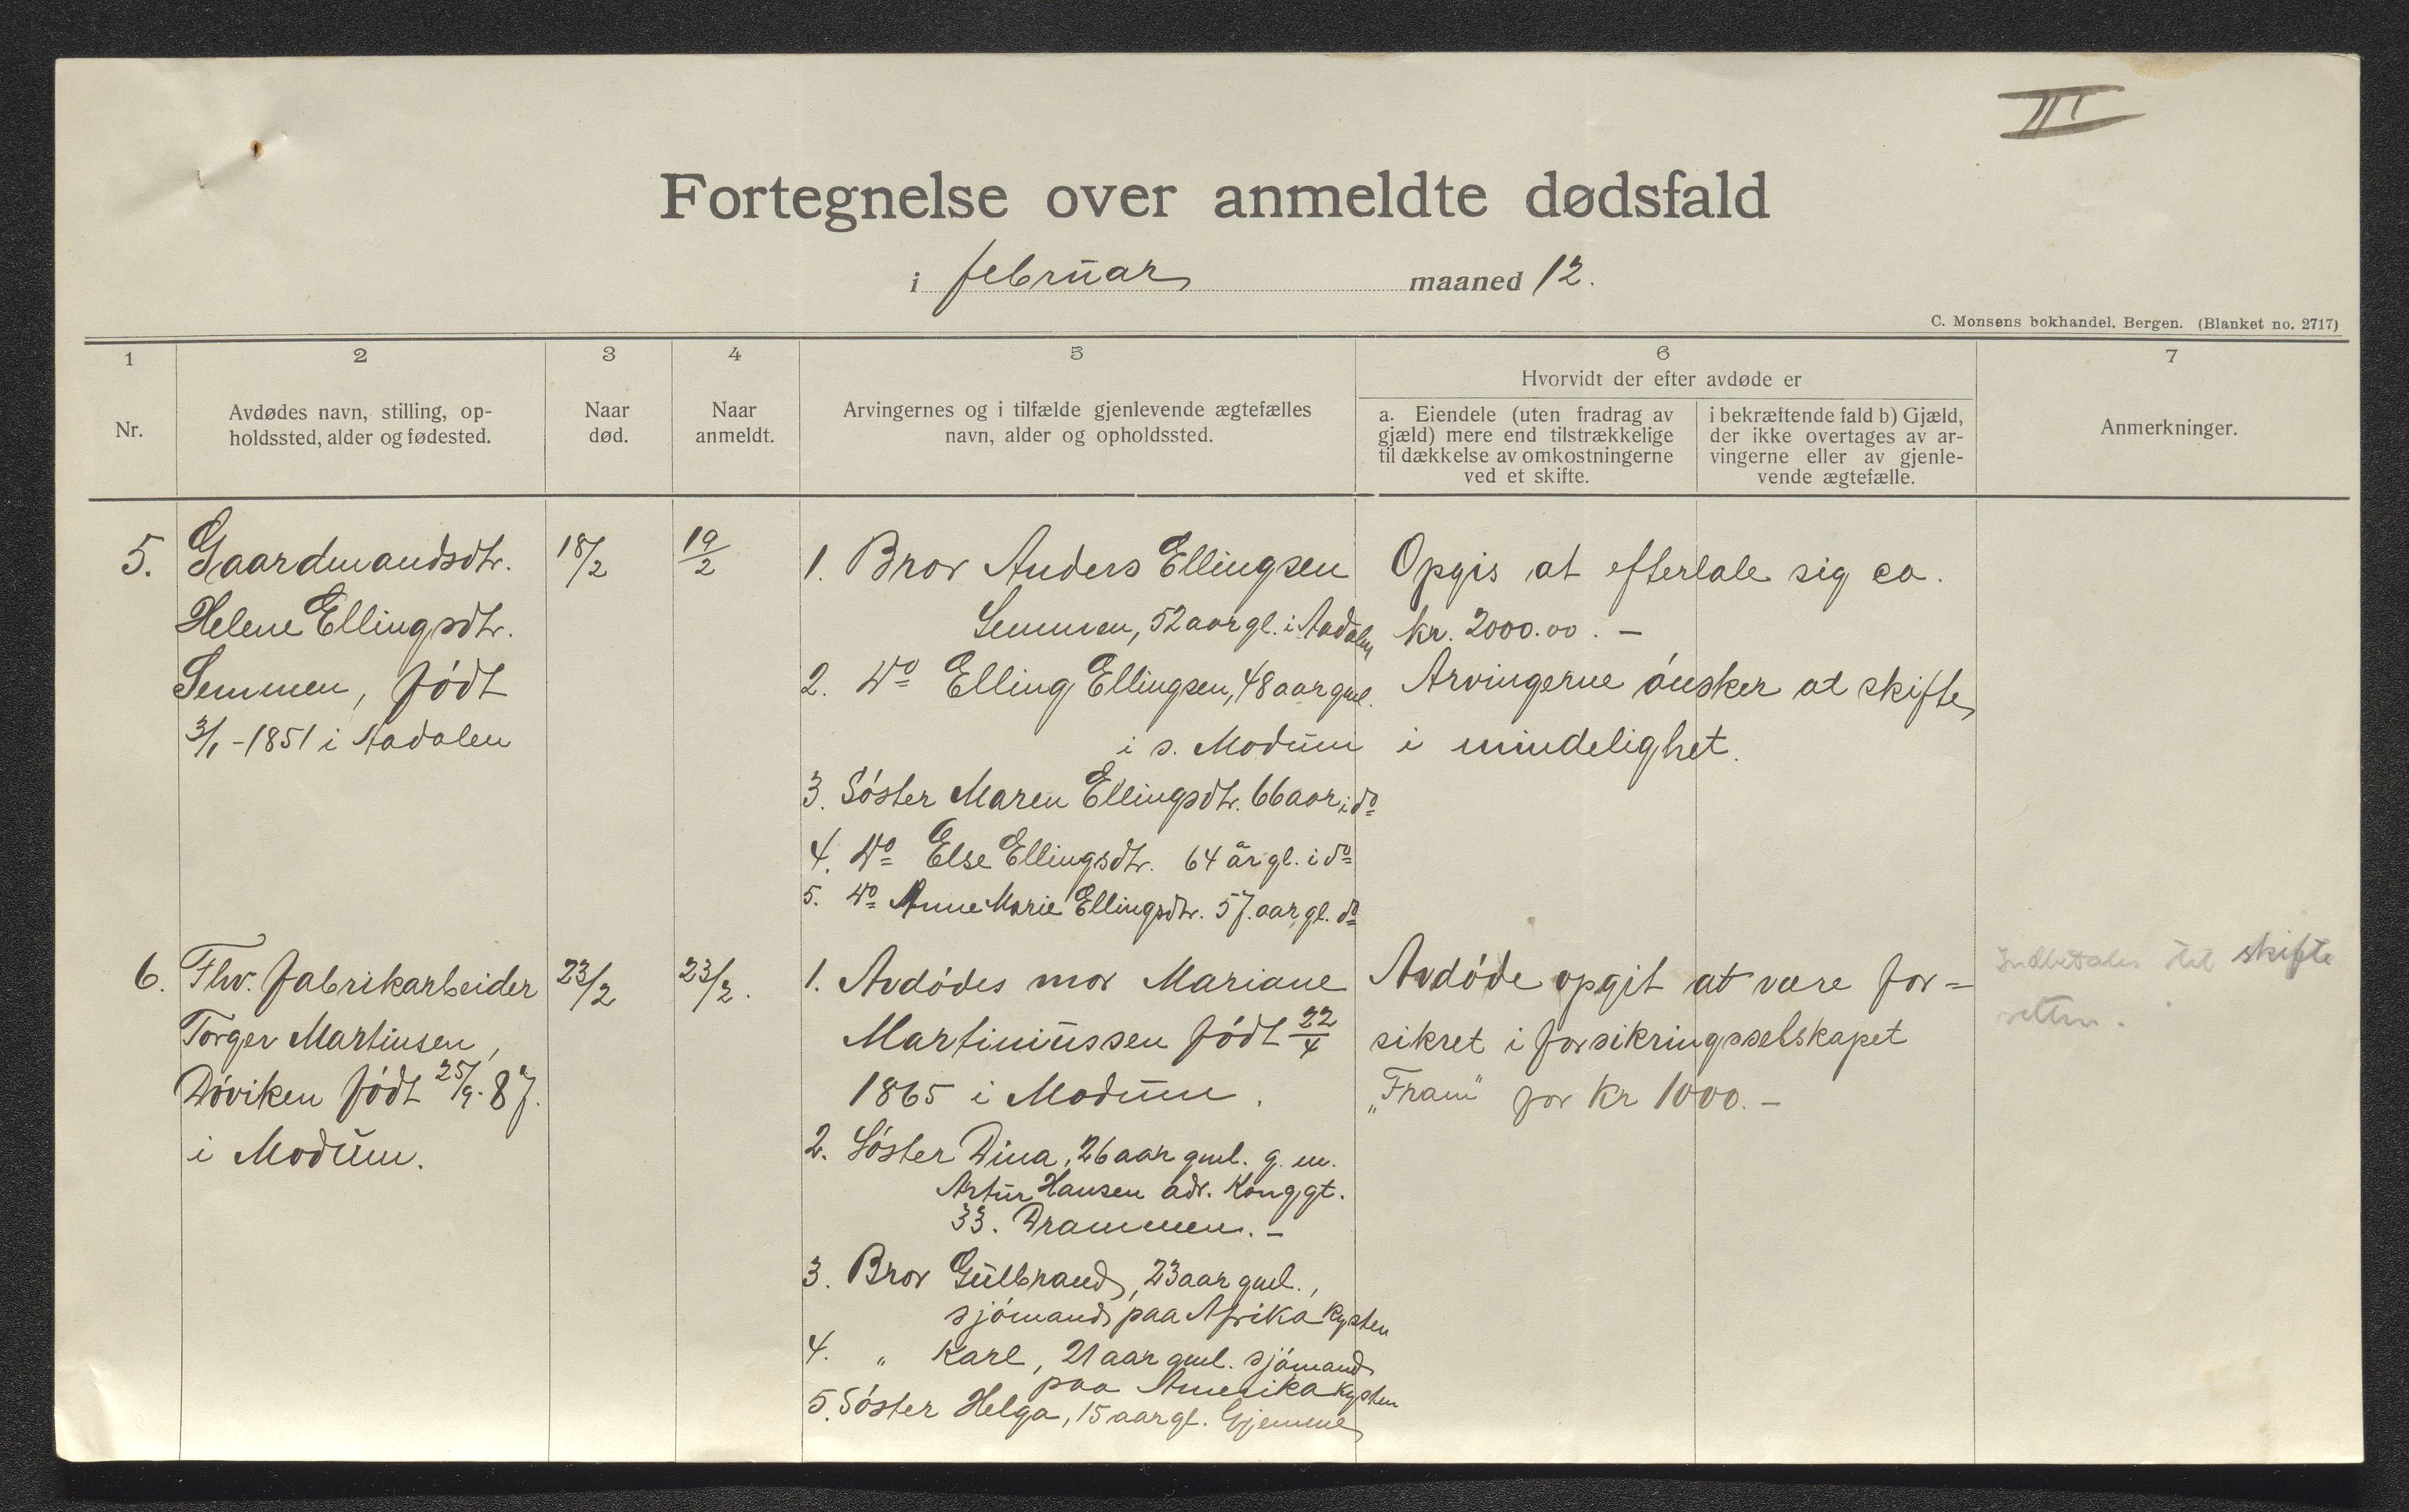 III
Fortegnelse over anmeldte dødsfald
i februar maaned 12.
C. Monsens bokhandel, Bergen. (Blanket no. 2717)
1
2
3
4
5
6
7
Nr.
Avdødes navn, stilling, op-
holdssted, alder og fødested.
Naar
død.
Naar
anmeldt.
Arvingernes og i tilfælde gjenlevende ægtefælles
navn, alder og opholdssted.
Hvorvidt der efter avdøde er
a. Eiendele (uten fradrag av
gjæld) mere end tilstrækkelige
til dækkelse av omkostningerne
ved et skifte.
i bekræftende fald b) Gjæld,
der ikke overtages av ar-
vingerne eller av gjenle-
vende ægtefælle.
Anmerkninger.
5.
Gaardmandsdtr.
Helene Ellingsdtr.
Semmen, født
3/1-1851 i Aadalen
18/2
19/2
1. Bror Anders Ellingsen
Semmen, 52 aar gl. i Aadalen
2. Do Elling Ellingsen, 48 aar gml.
i s. Modum
3. Søster Maren Ellingsdtr. 66 aar i do
4. Do Else Ellingsdtr. 64 år gl. i do
5. Do Anne Marie Ellingsdtr. 57. aar gl. do
Opgis at efterlate sig ca.
kr. 2000.00. -
Arvingerne ønsker at skifte
i mindelighet.
6.
Fhv. fabrikarbeider
Torger Martinsen,
Døviken født 25/9-87.
i Modum.
23/2
23/2.
1. Avdødes mor Mariane
Martiniussen født 22/4
1865 i Modum.
2. Søster Dina, 26 aar gml. g. m.
Artur Hansen adr. Konggt.
33. Drammen. -
3. Bror Gulbrand, 23 aar gml.,
sjømand paa Afrika kysten
4. " Karl, 21 aar gml. sjømand
paa Amerika kysten
5. Søster Helga, 15 aar gl. hjemme
Avdøde opgit at være for-
sikret i forsikringsselskapet
„Fram" for Kr 1000. -
Indbetales til skifte
retten.